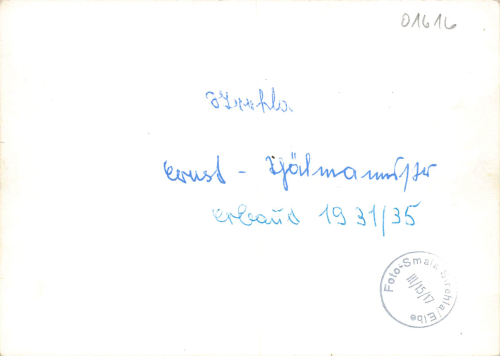 01616
Strehla
Ernst - Thälmannstr
erbaut 1931/35
Foto-Smala Strehla/Elbe
III/15/17